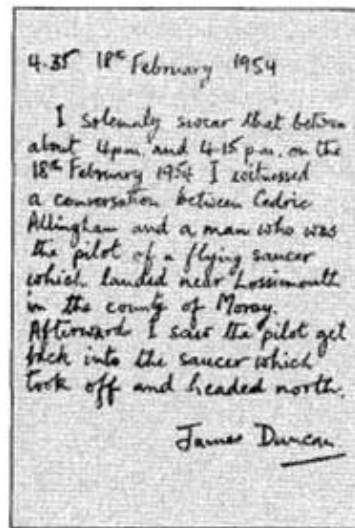 4.35 18th February 1954
I solemnly swear that between
about 4pm. and 4.15 p.m. on the
18th February 1954 I witnessed
a conversation between Cedric
Allingham and a man who was
the pilot of a flying saucer
which landed near Lossiemouth
in the county of Moray.
Afterward I saw the pilot get
back into the saucer which
took off and headed north.
James Duncan